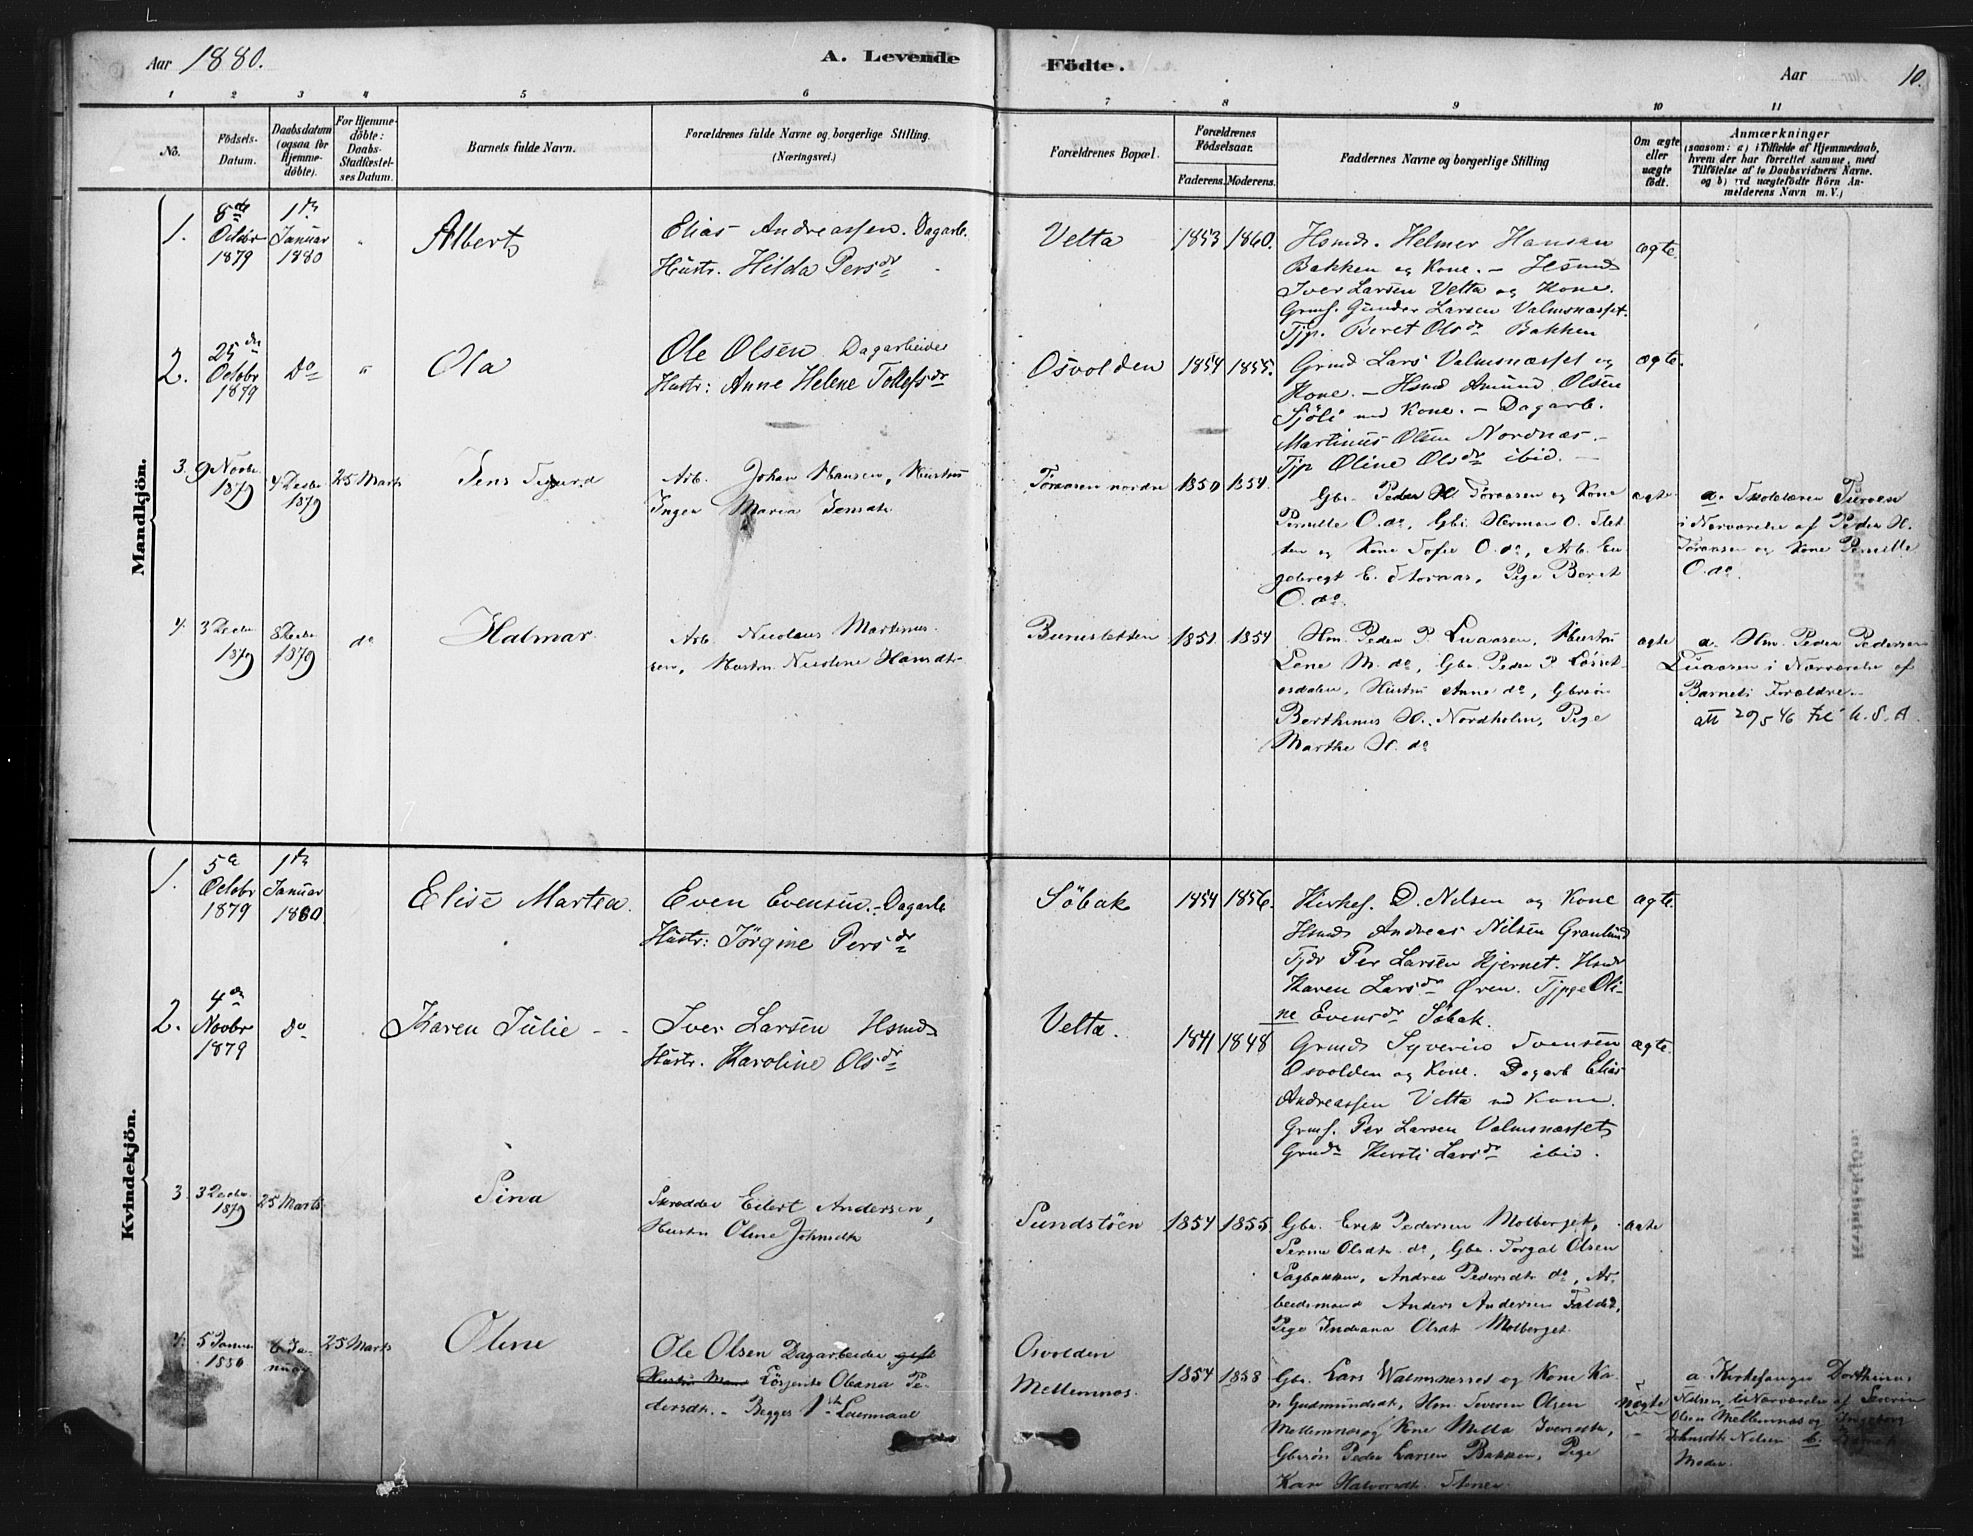 Aar 1880.
A. Levende Födte.
Aar 10.
1 2 3 4 5 6 7 8 9 10 11
No.
Födsels-Datum.
Daabsdatum (ogsaa for Hjemme-döbte).
For Hjemme-döbte: Daabs-Stadfæstel-ses Datum.
Barnets fulde Navn.
Forældrenes fulde Navne og borgerlige Stilling. (Næringsvei.)
Forældrenes Bopæl.
Forældrenes Födselsaar.
Faderens. Moderens.
Faddernes Navne og borgerlige Stilling
Om ægte eller uægte födt.
Anmærkninger
(saasom: a) i Tilfælde af Hjemmedaab,
hvem der har forrettet samme, med
Tilföielse af to Daabsvidners Navne.
og b) ved uægtefödte Börn An-
melderens Navn m. V.)
Mandkjön.
1.
8de Octobr 1879
1ste Januar 1880
"
Albert
Elias Andreassen. Dagarb.
Hustr. Hilda Persdr
Velta
1853 1860.
Hsmd. Helmer Hansen
Bakken og Kone. — Hsmd
Iver Larsen Velta og Kone.
Grmf. Gunder Larsen Valmsnæsset.
Tjp. Beret Olsdr Bakken
ægte.
2.
25de Octobr 1879
Do
"
Ola
Ole Olsen Dagarbeider
Hustr: Anne Helene Tollefsdr
Osvolden
1854 1855.
Grmd Lars Valmsnæsset og
Kone. — Hsmd Amund Olsen
Sjöli med Kone. — Dagarb.
Martinus Olsen Nordnæs. —
Tjp Oline Olsdr ibid. —
ægte.
3.
9 Novbr 1879
4 Decbr 1879
25 Marts
Jens Sigurd
Arb. Johan Hansen, Hustru
Inger Maria Jensdtr
Töraasen nordre
1850 1854.
Gbr. Peder H. Töraasen og Kone
Pernille O. do, Gbr. Herman O. Slet-
ten og Kone Sofie O. do, Arb. En-
gebregt E. Stornæs, Pige Beret
O. do.
ægte
a. Skolelærer
i Nærværelse af Peder H.
Töraasen og Kone Pernille
O. do.
4.
3 Decbr 1879
8 Decbr 1879
do
Halmar
Arb. Nicolaus Martinus-
sen, Hustru Nicoline Hansdtr.
Burusletten
1851 1854
Hm. Peder P. Luaasen, Hustru
Lene M. do, Gbr. Peder P. Lösset-
æsdalen, Hustru Anne do, Gbrsön
Berthinus H. Nordholen, Pige
Marthe H. do
ægte
a. Hm. Peder Pedersen
Luaasen i Nærværelse af
Barnets Forældre. —
att 29/5 46 til U.S.A.
Kvindekjön.
1.
5te Octobr 1879
1ste Januar 1880
Elise Martea.
Even Evensen. - Dagarb
Hustr: Jörgine Persdr
Söbak
1854 1856.
Kirkes. D. Nilsen og Kone
Hsmd Andreas Nilsen Granlund
Tjdr Per Larsen Kjernet. Hsmd
Karen Larsdr Øren. Tjpge Oli-
ne Evensdr Söbak.
ægte.
2.
4de Novbr 1879
Do
Karen Julie
Iver Larsen Hsmd
Hustr. Karoline Olsdr
Velta.
1841 1848
Grmd Syverin Svensen
Osvolden og Kone. Dagarb Elias
Andreassen Velta md Kone.
Grmf. Per Larsen Valmsnæsset,
Grmd Kersti Larsdr ibid.
ægte.
3.
3 Decbr. 1879
25 Marts
Sina
Skrædder Edert Andersen,
Hustru Oline Johnsdtr
Sundstöen
1854 1855
Gbr. Erik Pedersen Molberget,
Serine Olsdtr. do, Gbr. Torgal Olsen
Sagbakken, Andrea Pedersdtr do, Ar-
beidsmand Anders Andersen Faldet,
Pige Indiana Olsdtr Molberget.
ægte
4.
5 Januar 1880
6 Ja-nuar
25 Marts
Oline
Ole Olsen Dagarbeider gift
Lösjente Oleana Pe-
dersdtr. - Begges 1ste Leiermaal
Osvolden
Mellemnæs.
1854 1858
Gbr. Lars Walmsnesset og Kone Ka-
ri Gudmundsdtr, Hm. Severin Olsen
Mellemnæs og Kone Mella Iversdtr,
Gbrsön Peder Larsen Bakken, Pige
Kari Halvorsdtr. Stener
uægte
a. Kirkesanger Dortheius
Nilsen, i Nærværelse af Severin
Olsen Mellemnæs og Ingeborg
Johnsdtr Nilsen b. Barnets
Moder.